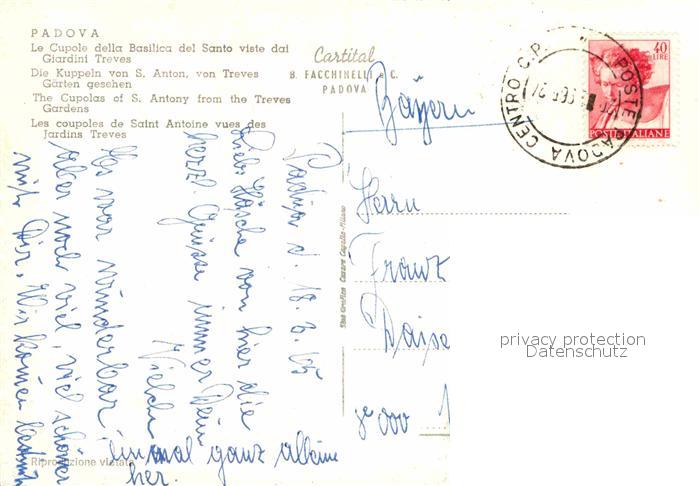 PADOVA
Le Cupole della Basilica del Santo viste dai
Giardini Treves
Die Kuppeln von S. Anton, von Treves
Gärten gesehen
The Cupolas of S. Antony from the Treves
Gardens
Les coupoles de Saint Antoine vues des
Jardins Treves
Cartital
B. FACCHINELLI & C.
PADOVA
40
LIRE
POSTE ITALIANE
POSTE PADOVA CENTRO C.P.
Bayern
Herrn
Franz
Daise
8000 1
privacy protection
Datenschutz
Padua d. 18. 6. 65
von hier die
herzl. Grüsse immer Dein
Es war wunderbar
Aber noch viel, viel schöner
mit Dir. Wir
einmal ganz alleine
her.
Riproduzione vietata